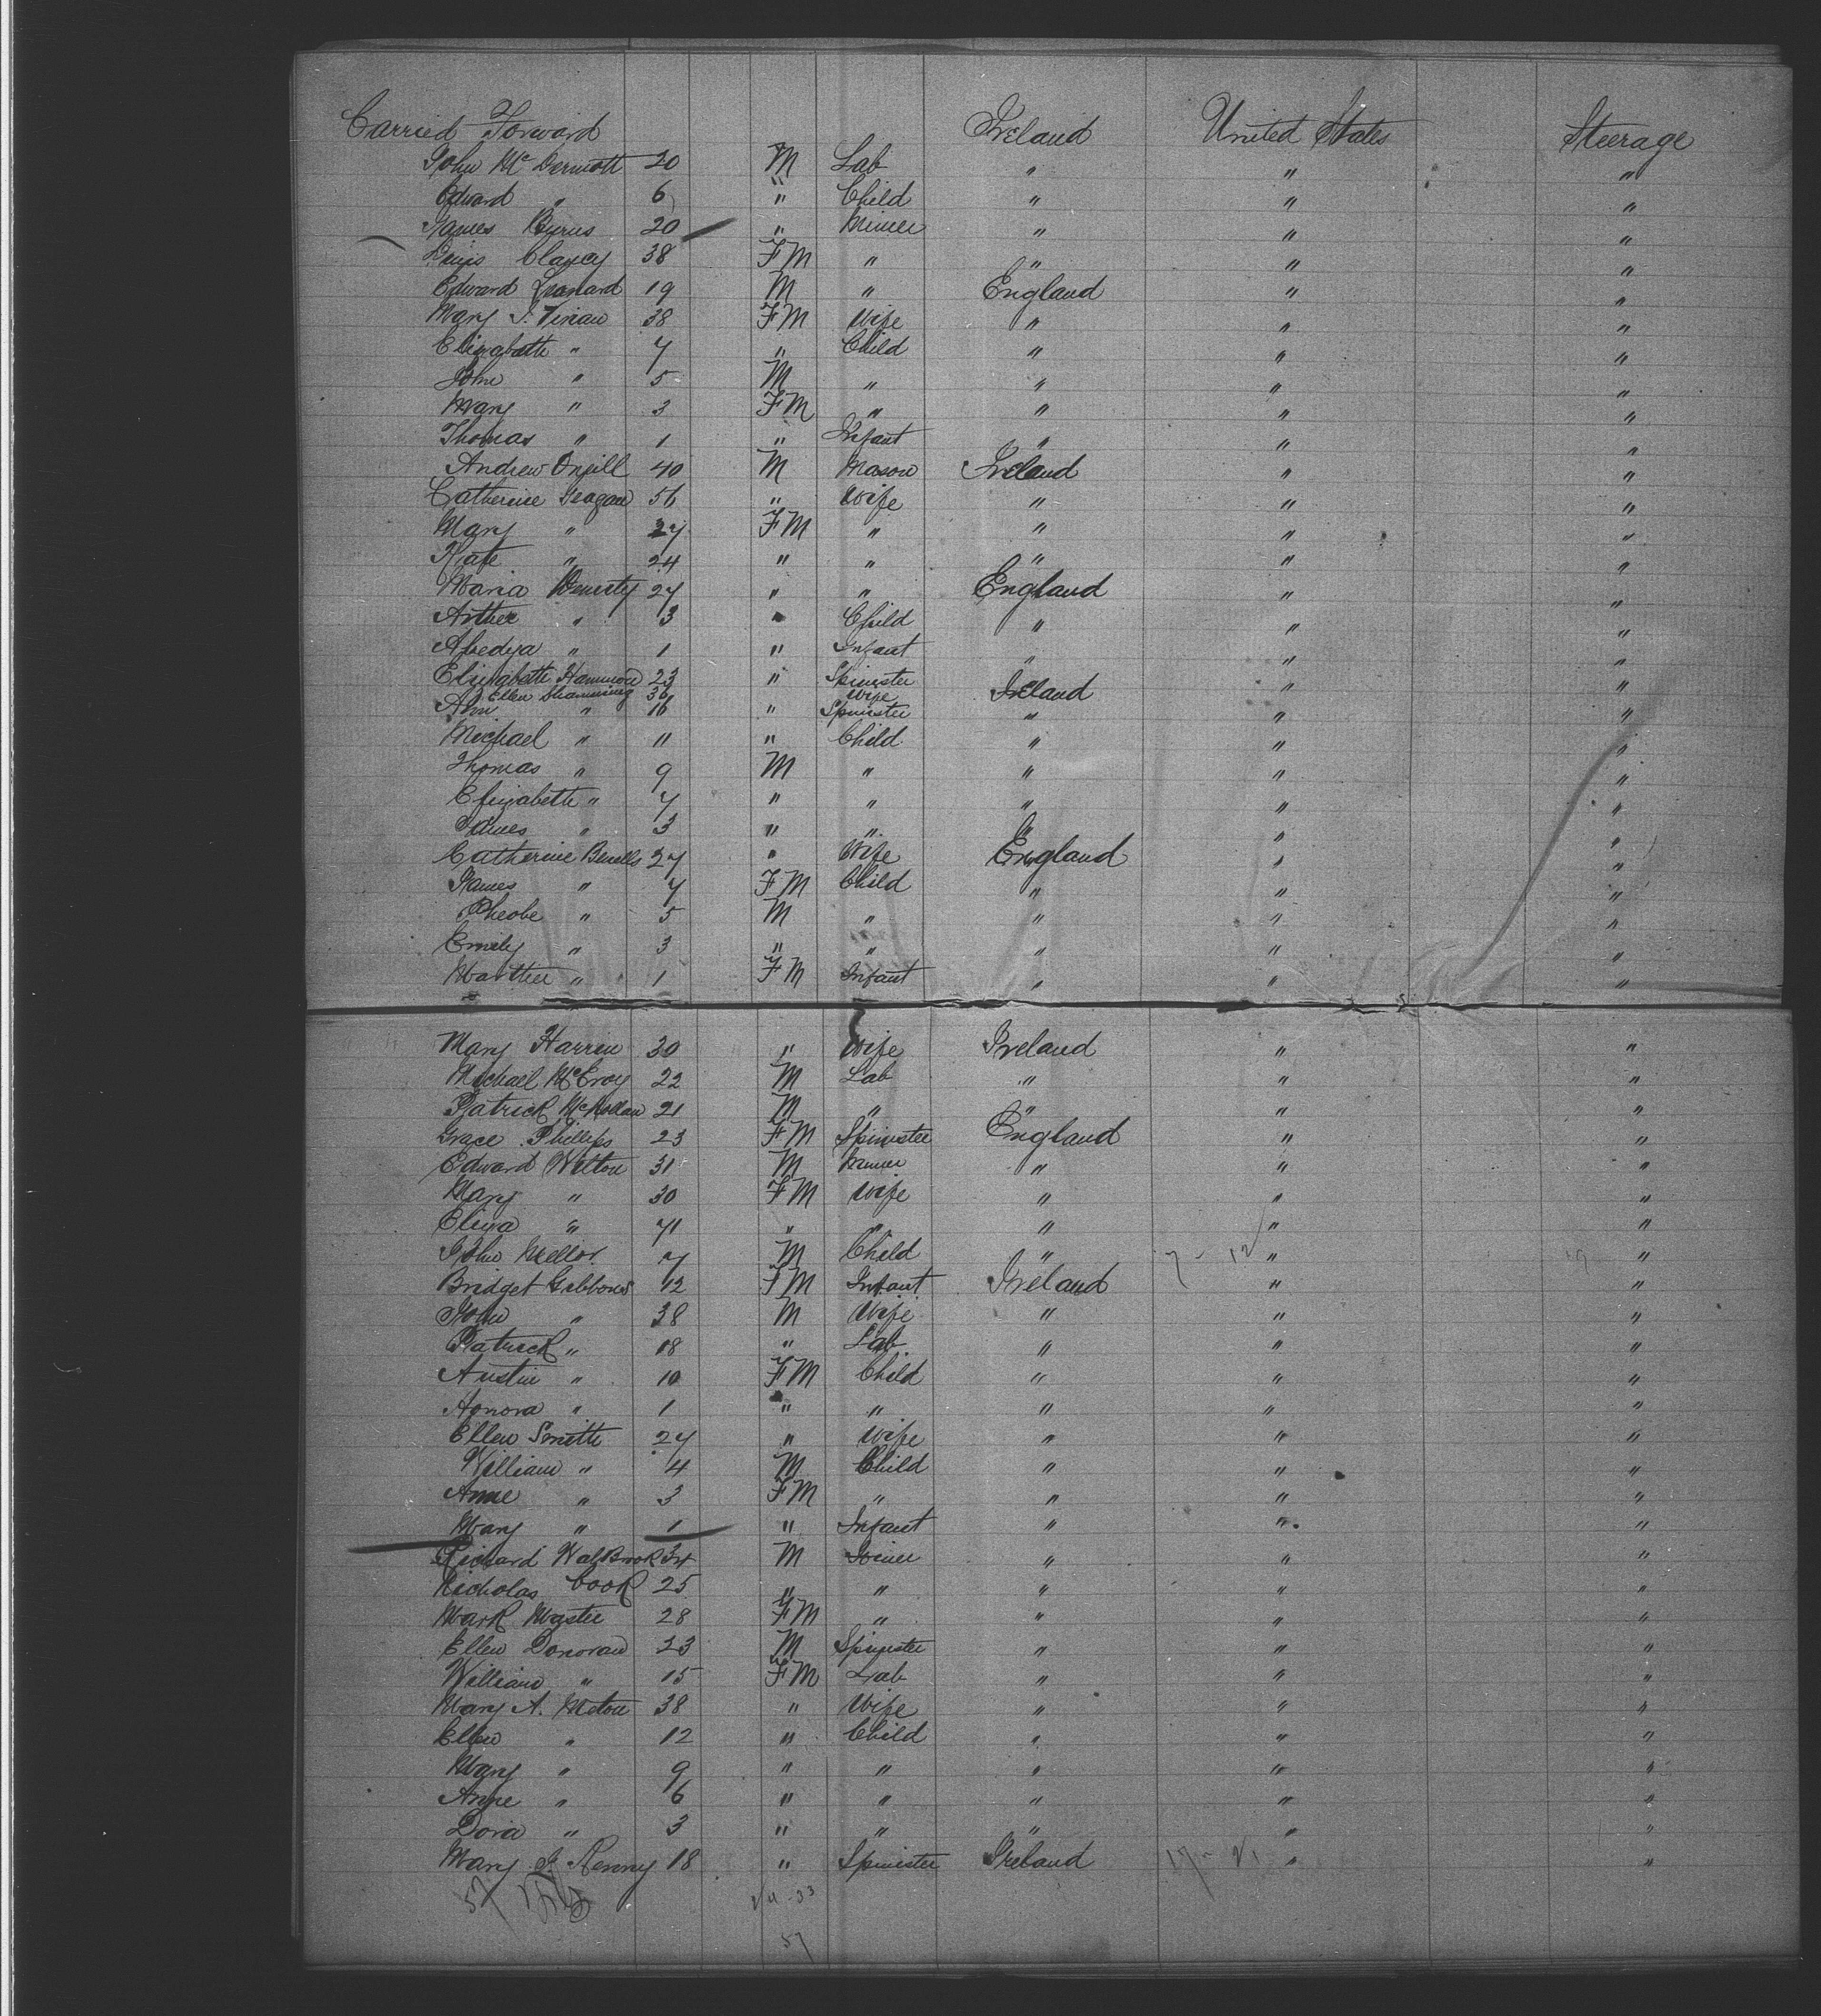 Carried Forward Ireland United States Steerage
John McDermott 20 M Lab " " "
Edward " 6 " Child " " "
James Byrns 20 " Miner " " "
Denis Clancy 38 F M " " " "
Edward Leonard 19 M " England " "
Mary J. 38 F M Wife " " "
Elizabeth " 7 " Child " " "
John " 5 M " " " "
Mary " 3 F M " " " "
Thomas " 1 " Infant " " "
Andrew Oneill 40 M Mason Ireland " "
Catherine Geagan 56 " Wife " " "
Mary " 27 F M " " " "
Kate " 24 " " " " "
Maria 27 " " England " "
Arther " 3 " Child " " "
" 1 " Infant " " "
Elizabeth Hammond 23 " Spinster " "
Ellen 36 Wife Ireland
Ann " 16 " Spinster " " "
Michael " 11 " Child " " "
Thomas " 9 M " " " "
Elizabeth " 7 " " " " "
James " 3 " " " " "
Catherine 27 " Wife England " "
James " 7 F M Child " " "
Pheobe " 5 M " " " "
Emily " 3 " " " " "
Marther " 1 F M Infant " " "
Mary 30 " Wife Ireland " "
Michael McEroy 22 M Lab " " "
Patrick 21 M " " " "
Grace Phillips 23 F M Spinster England " "
Edward Welton 31 M Miner " " "
Mary " 30 F M Wife " " "
Eliza " 71 " " " "
John Mellor 7 M Child " 7 - 12 " "
Bridget Gibbons 12 F M Infant Ireland " "
John " 38 M Wife " " "
Patrick " 18 " Lab " " "
Austin " 10 F M Child " " "
Honora " 1 " " " " "
Ellen Smith 27 " Wife " " "
William " 4 M Child " " "
Anne " 3 F M " " " "
Mary " 1 " Infant " " "
Richard Walbrook 34 M Joiner " " "
Nicholas Cook 25 " " " " "
Mark Master 28 F M " " " "
Ellen Donovan 23 M Spinster " " "
William " 15 F M Lab " " "
Mary A. 38 " Wife " " "
Ellen " 12 " Child " " "
Mary " 9 " " " " "
Anne " 6 " " " " "
Dora " 3 " " " " "
Mary J Kenny 18 " Spinster Ireland " "
57
57